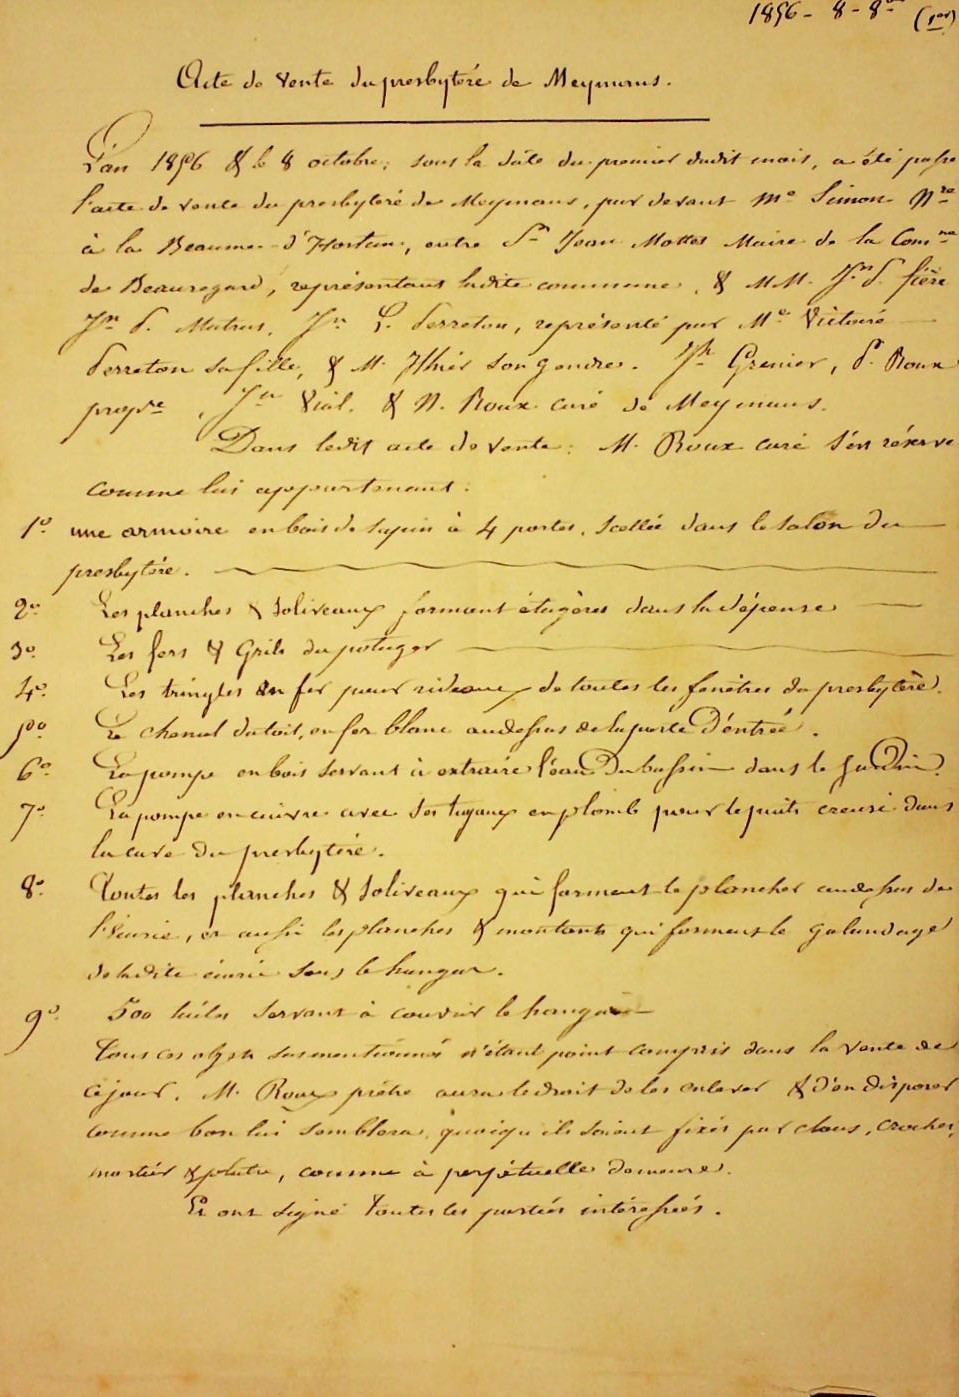 1856 - 8 - 8bre (1er)
Acte de vente du presbytère de Meymans.
L'an 1856 & le 8 octobre, sous la date du premier dudit mois, a été passé
l'acte de vente du presbytère de Meymans, par devant Me Simon Nre
à la Beaume-d'Hostun, entre Sr Jean Mottet Maire de la Comne
de Beauregard, représentant ladite commune, & MM. Jn P. fière
Jn P. Matras, Jn L. Perreton, représenté par Me Victoire
Perreton sa fille, & M. Ithier son gendre. Jh Grenier, P. Roux
propre, Jn Vial, & N. Roux curé de Meymans.
Dans ledit acte de vente: M. Roux curé s'en réserve
comme lui appartenant:
1º une armoire en bois de sapin à 4 portes, scellée dans le salon du
presbytère.
2º Les planches & soliveaux formant étagères dans la dépense
3º Les fers & Grils du potager
4º Les tringles en fer pour rideaux de toutes les fenêtres du presbytère.
5º Le chenal du toit, en fer blanc au dessus de la porte D'éntreé.
6º La pompe en bois servant à extraire l'eau Du bassin dans le jardin.
7º La pompe en cuivre avec ses tuyaux en plomb pour le puits creusé dans
la cave du presbytère.
8º Toutes les planches & soliveaux qui forment le plancher au dessus de
l'écurie, et aussi les planches & montants qui forment le galandage
de ladite écurie sous le hangar.
9º 500 tuiles servant à couvrir le hangar
Tous ces objets susmentionnés n'étant point compris dans la vente de
ce jour, M. Roux prêtre aura le droit de les enlever & d'en disposer
comme bon lui semblera, quoiqu'ils soient fixés par clous, crochets,
mortier & plâtre, comme à perpétuelle demeure.
Et ont signé toutes les parties intéressées.